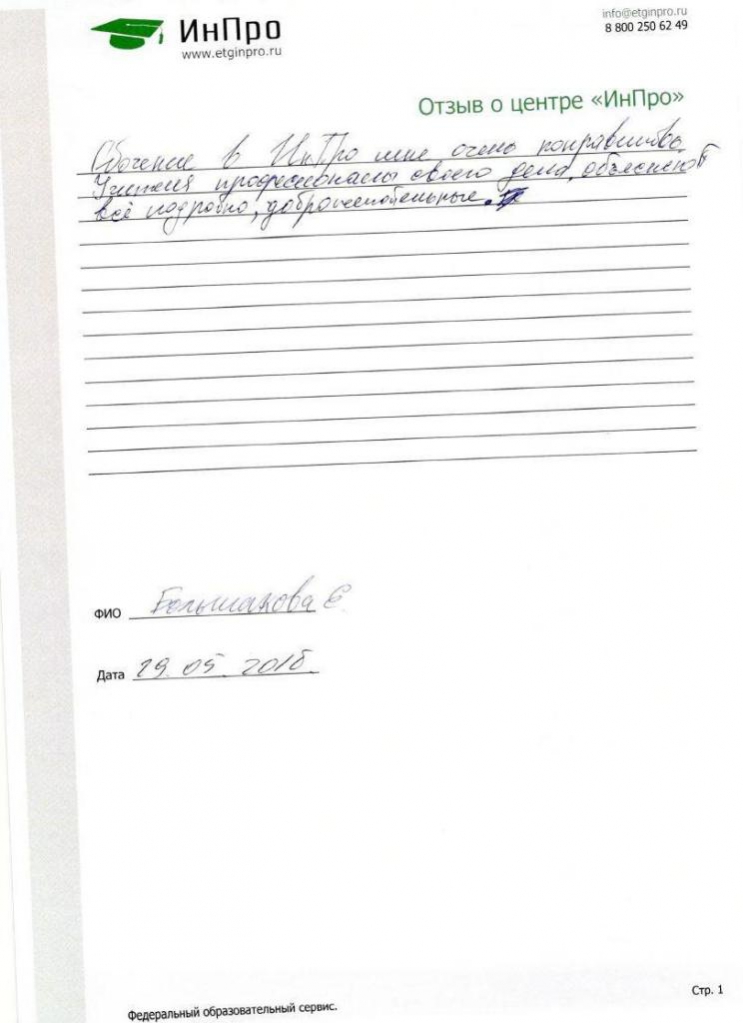 ИнПро
www.etginpro.ru
info@etginpro.ru
8 800 250 62 49
Отзыв о центре «ИнПро»
Обучение в ИнПро мне очень понравилось
Учителя профессионалы своего дела, объясняют
всё подробно, доброжелательные.
ФИО Большакова Е.
Дата 29.05.2018.
Стр. 1
Федеральный образовательный сервис.